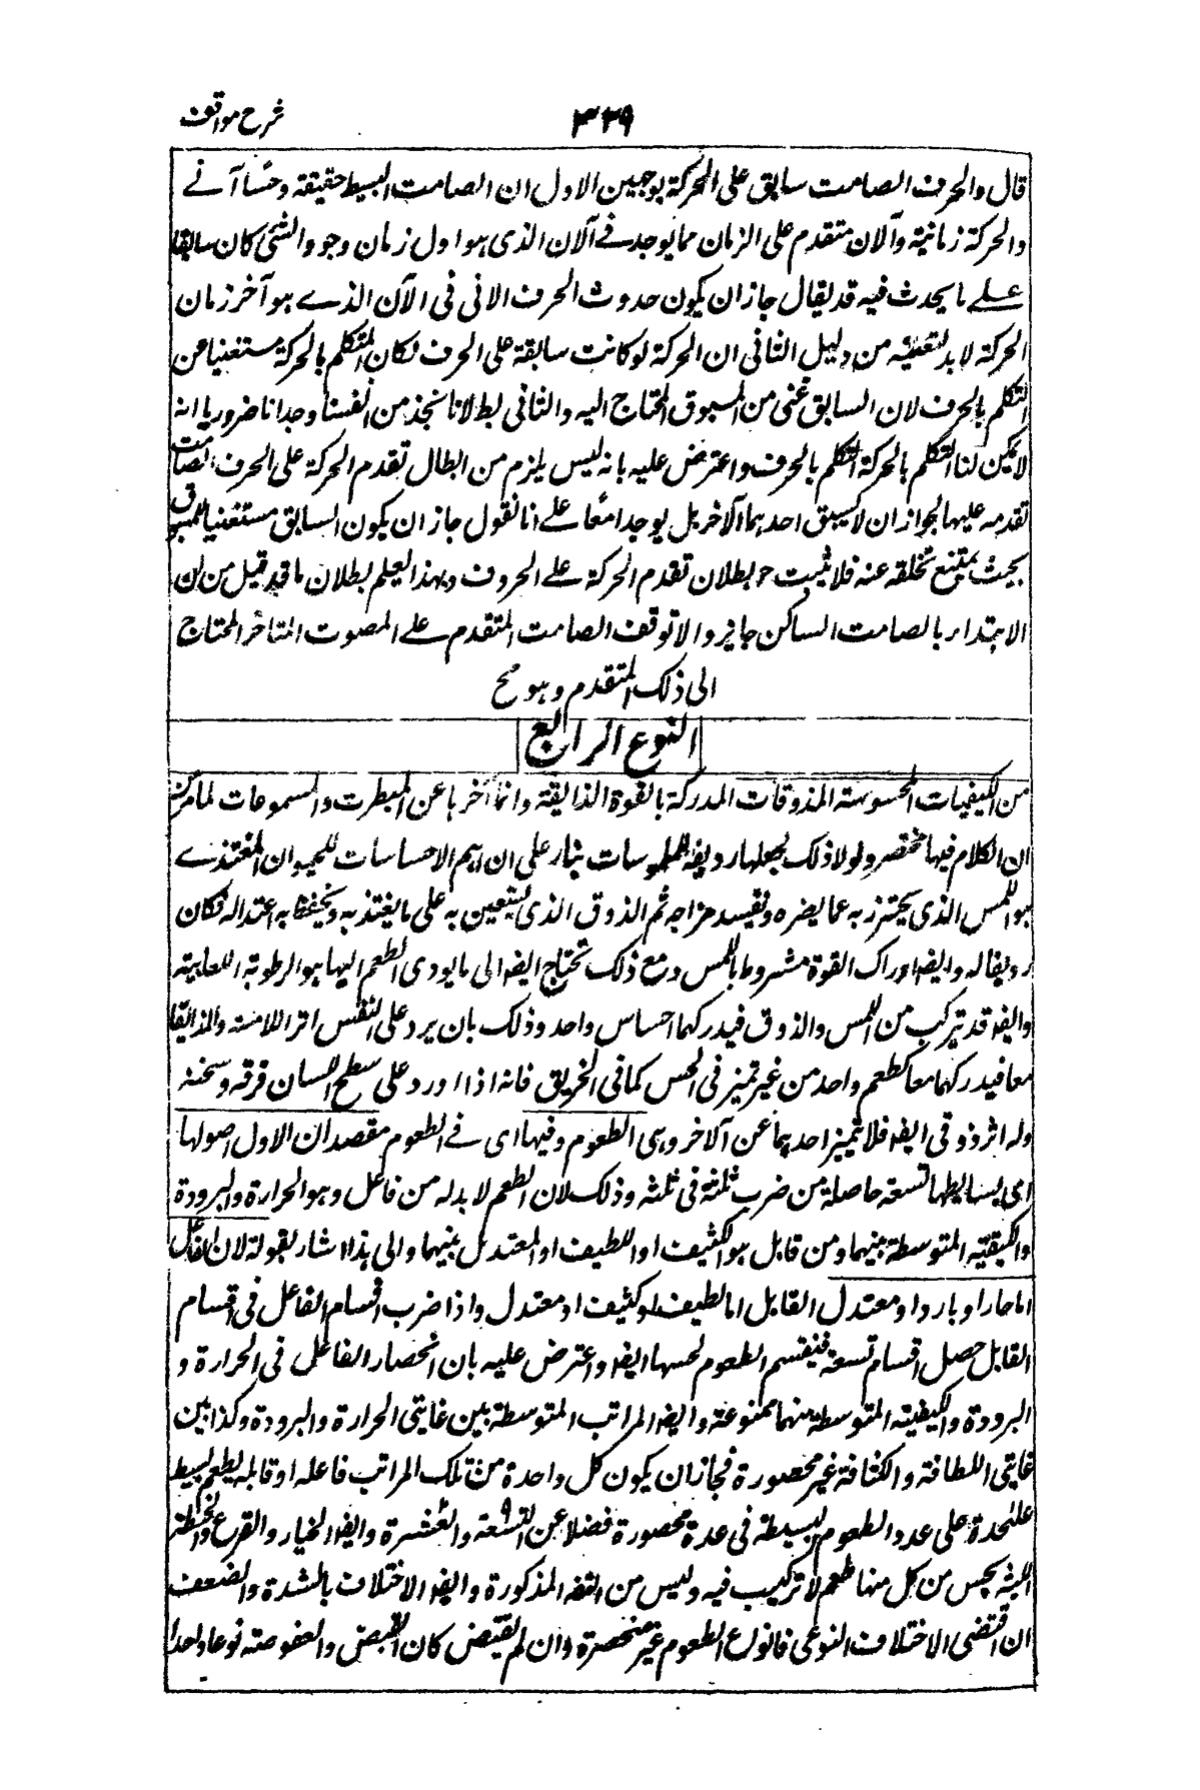 شرح مواقف
٣٢٩
قال والحرف الصامت سابق على الحركة بوجهين الاول ان الصامت البسيط حقيقة وحسا آنے
والحركة زمانية والآن متقدم على الزمان مما يوجد فے الآن الذى هو اول زمان وجود الشئ كان سابقا
علے ما يحدث فيه قد يقال جاز ان يكون حدوث الحرف الانى فى الآن الذے هو آخر زمان
الحركة لا بد لنفيه من دليل الثانى ان الحركة لو كانت سابقة على الحرف لكان المتكلم بالحركة مستغنيا عن
التكلم بالحرف لان السابق غنى من المسبوق المحتاج اليه والثانى بط لانا نجد من انفسنا وجدانا ضروريا انه
لا يمكن لنا التكلم بالحركة التكلم بالحرف واعترض عليه بانه ليس يلزم من ابطال تقدم الحركة على الحرف الصامت
تقدمه عليها لجواز ان لا يسبق احدهما الآخر بل يوجد امعا علے انا نقول جاز ان يكون السابق مستغنيا للمسبوق
بحيث يمتنع تخلفه عنه فلا يثبت ح بطلان تقدم الحركة علے الحروف وبهذا يعلم بطلان ما قد قيل من ان
الابتداء بالصامت الساكن جايز والا توقف الصامت المتقدم علے المصوت المتاخر المحتاج
الى ذلك المتقدم وهو مح
النوع الرابع
من الكيفيات المحسوسة المذوقات المدركة بالقوة الذايقة وانما اخرها عن المبصرات والمسموعات لما مر من
ان الكلام فيها مختصر ولولا ذلك لجعلها رديفة للملموسات بناء على ان اهم الاحساسات للحيوان المغتذے
هو اللمس الذى يحترز به عما يضره ويفسد مزاجه ثم الذوق الذى يستعين به على ما يغتذ به ويحفظ به اعتداله فكان
رديفا له وايضا ادراك القوة مشروط باللمس ومع ذلك تحتاج ايضا الى ما يودى الطعم اليها هو الرطوبة اللعابية
وايضا قد تركب من اللمس والذوق فيدركهما احساس واحد وذلك بان يرد على النفس اثر اللامسة والذائقة
معا فيدركهما معا كطعم واحد من غير تميز فى الحس كما فى الحريق فانه اذا اورد على سطح اللسان فرقه وسخنه
وله اثر ذوقى ايضا فلا تميز احدهما عن الآخر وهى الطعوم وفيها اى فے الطعوم مقصدان الاول اصولها
اى بسايطها تسعة حاصلة من ضرب ثلثة فى ثلثة وذلك لان الطعم لا بد له من فاعل وهو الحرارة والبرودة
والكيفية المتوسطة بينهما ومن قابل هو الكثيف او اللطيف او المعتدل بينهما والى هذا اشار بقوله لان الفاعل
اما حار او بارد او معتدل القابل اما لطيف او كثيف او معتدل واذا ضرب اقسام الفاعل فى اقسام
القابل حصل اقسام تسعة فينقسم الطعوم لحسبها ايضا واعترض عليه بان انحصار الفاعل فى الحرارة و
البرودة والكيفية المتوسطة منهما ممنوعة وايضا المراتب المتوسطة بين غايتى الحرارة والبرودة وكذا بين
غايتى اللطافة والكثافة غير محصورة فجاز ان يكون كل واحدة من تلك المراتب فاعله او قابله لطعم بسيط
علىحدة على عدد الطعوم البسيطة فى عدة محصورة فضلا عن التسعة والعشرة وايضا الخيار والقرع والحنطة
النية يحس من كل منها طعم لا تركيب فيه وليس من التسعة المذكورة وايضا الاختلاف بالشدة والضعف
ان اقتضى الاختلاف النوعى فانواع الطعوم غير منحصرة وان لم يقتض كان القبض والعفوصة نوعا واحدا